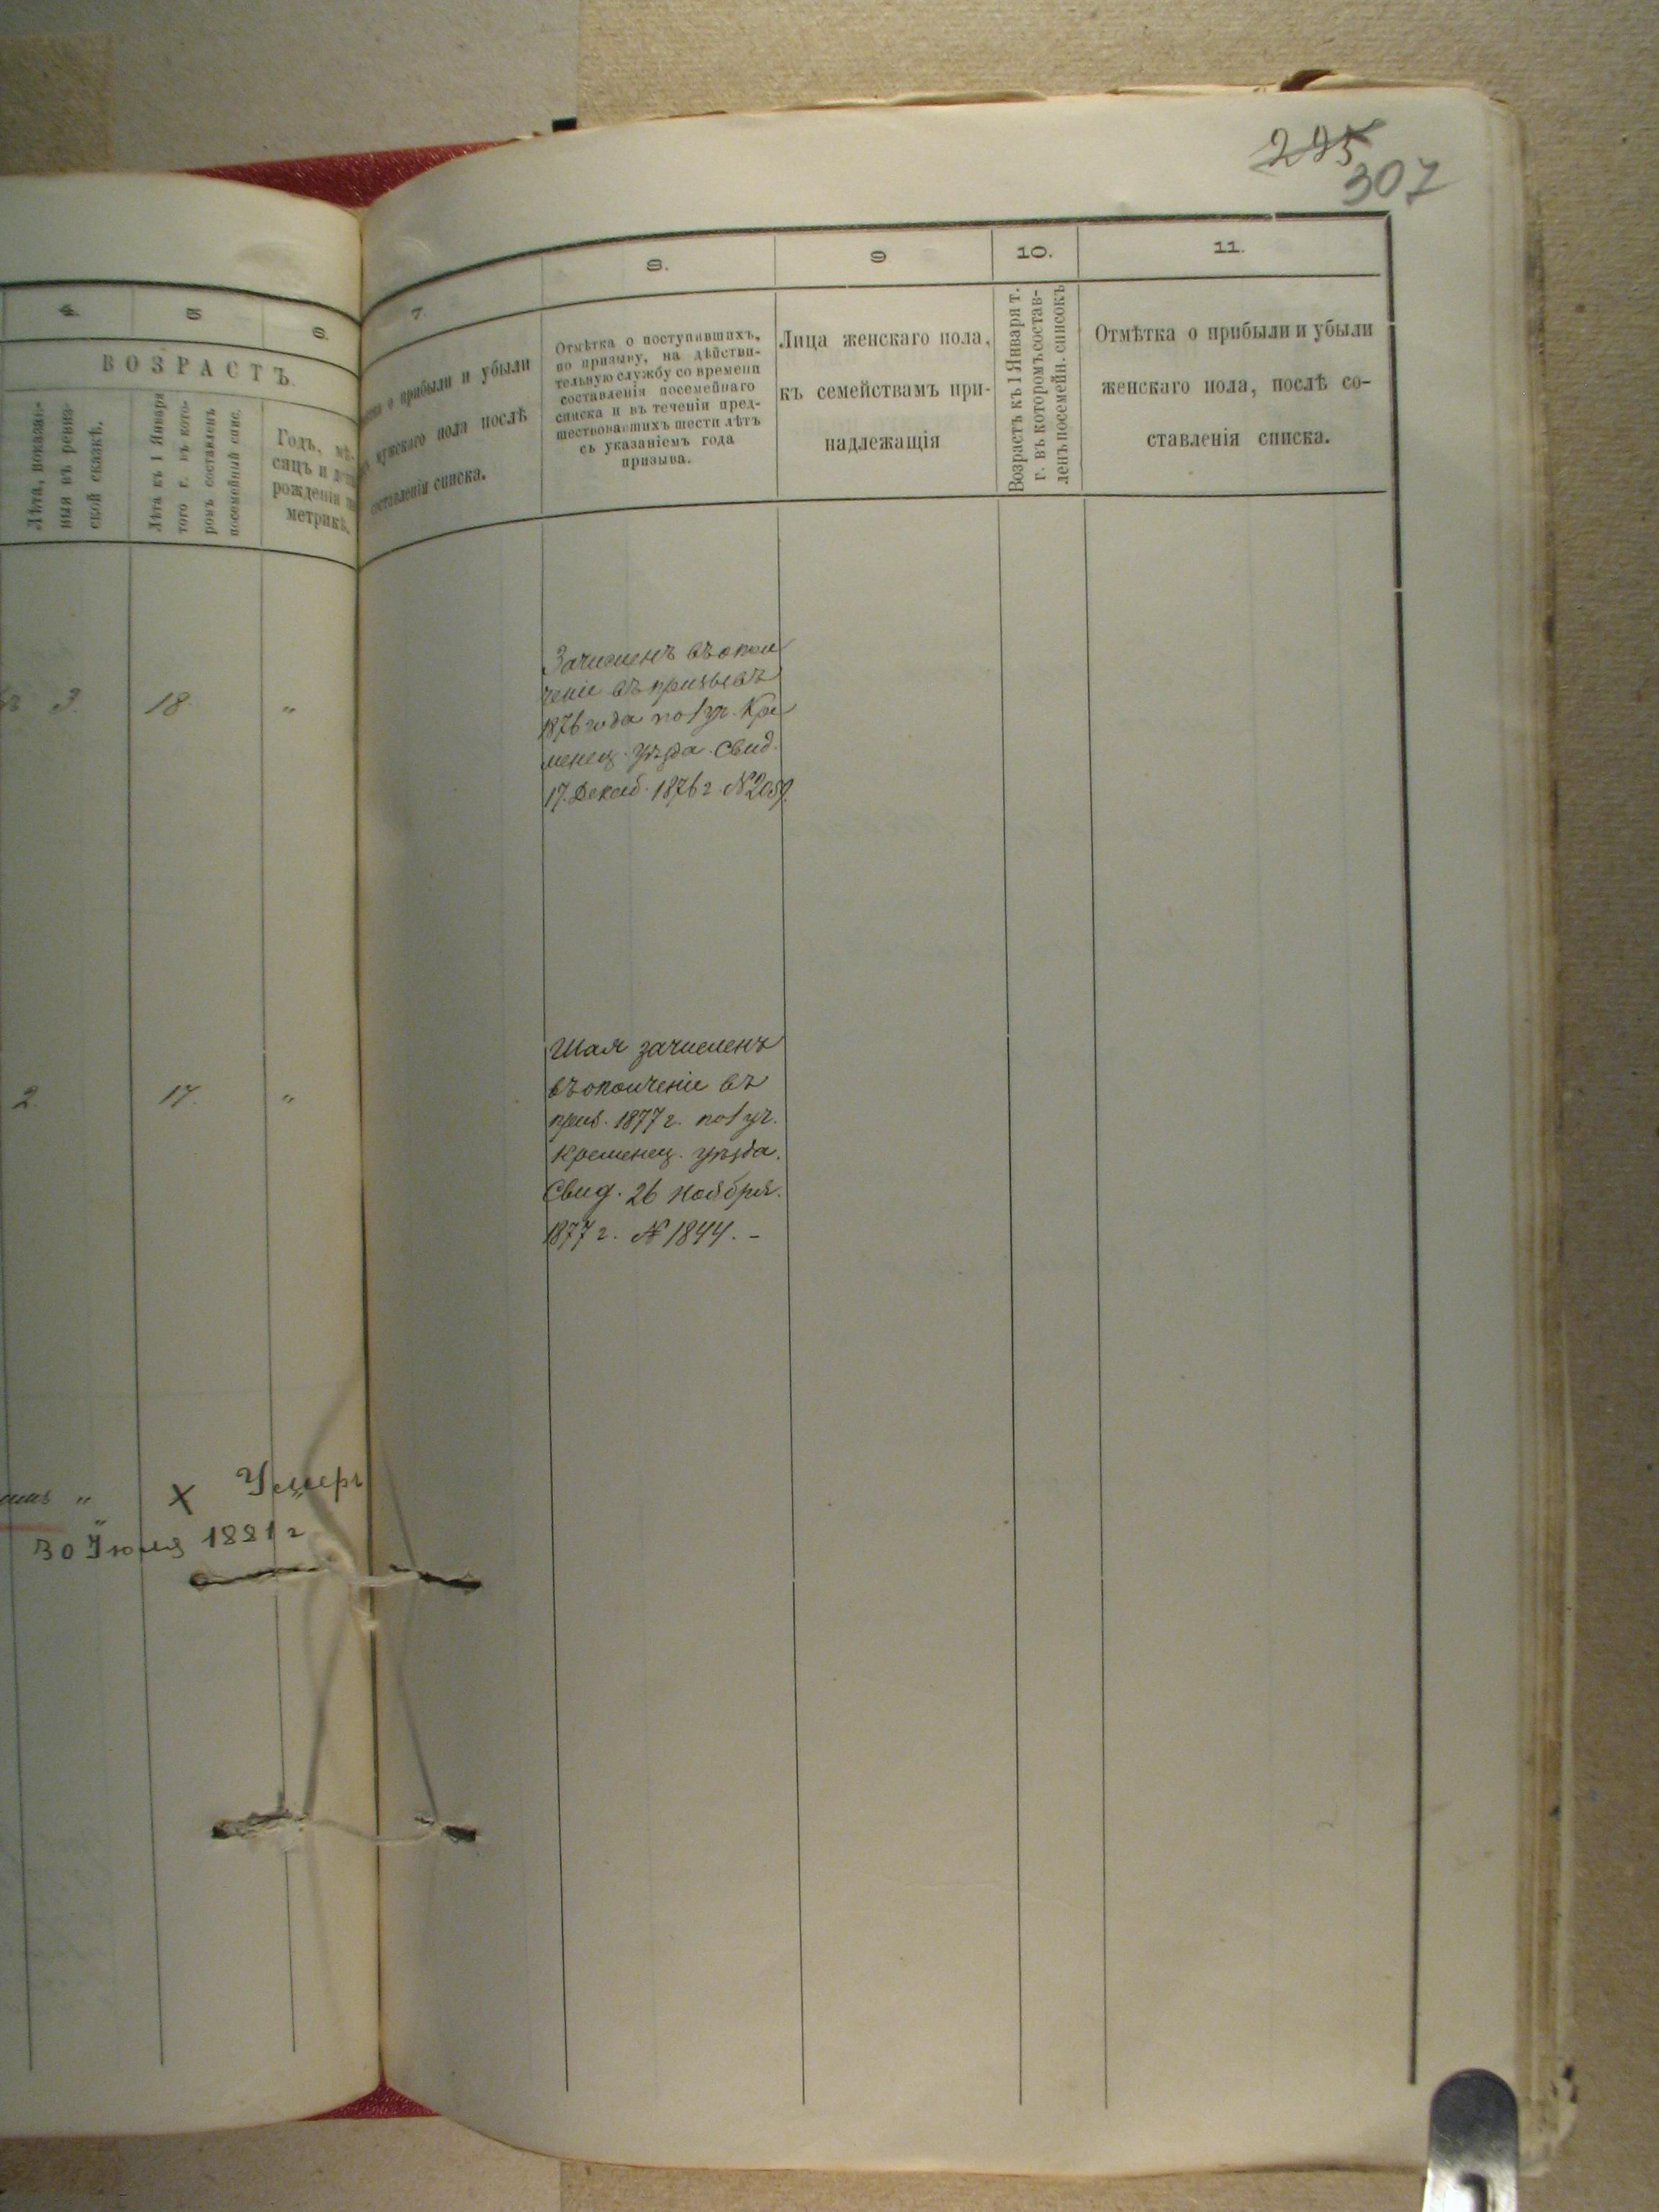 225
307
4.
5
6.
ВОЗРАСТЪ.
Лѣта, показан-
ныя въ ревиз-
ской сказкѣ.
Лѣта къ 1 Января
того г. въ кото-
ромъ составленъ
посемейный спис.
Годъ, мѣ-
сяцъ и
рожденія
метрикѣ.
3.
18.
"
2.
17.
"
" X Умеръ
30 Іюля 1881 г
7.
о прибыли и убыли
мужскаго пола послѣ
составленія списка.
8.
Отмѣтка о поступившихъ,
по призыву, на дѣйстви-
тельную службу со времени
составленія посемейнаго
списка и въ теченіи пред-
шествовавшихъ шести лѣтъ
съ указаніемъ года
призыва.
9
Лица женскаго пола,
къ семействамъ при-
надлежащія
10.
Возрастъ къ 1 Января т.
г. въ которомъ состав-
ленъ посемейн. списокъ
11.
Отмѣтка о прибыли и убыли
женскаго пола, послѣ со-
ставленія списка.
Зачисленъ въ опол
ченіе въ призывъ
1876 года по 1 уч. Кре
менец. уѣзда. Свид.
17. Декаб. 1876 г. № 2059.
Шая зачисленъ
въ ополченіе въ
приз. 1877 г. по 1 уч.
Кременец. уѣзда.
Свид. 26 Ноября.
1877 г. № 1844. –